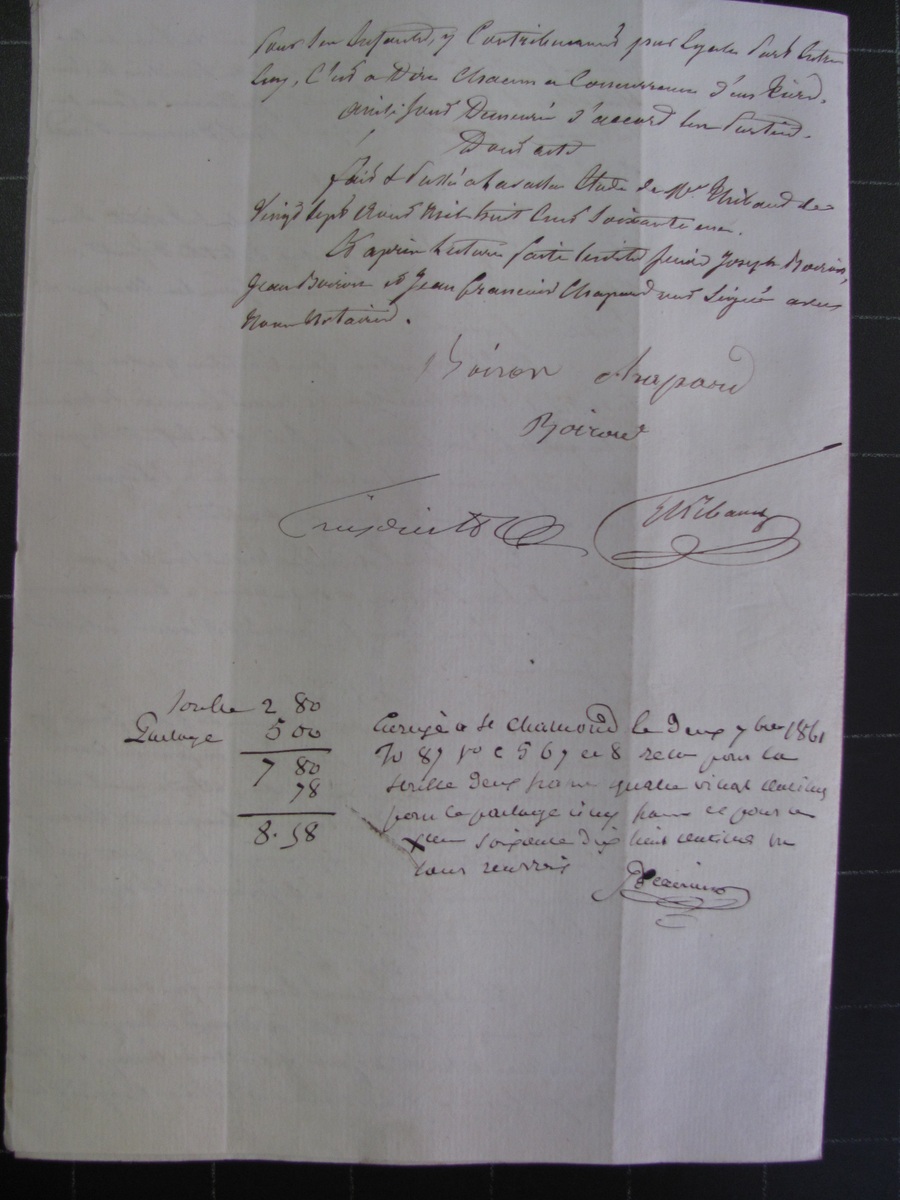 pour son Intérêt, y Contribueront par Egale Part Entre
Eux, C'est a Dire Chacun a Concurrence d'un tiers.
Ainsi sont Demeuré d'accord les Parties.
Dont acte
fait & Passé a Étude de Me. Thibaud le
vingt sept Aout Mil huit Cent Soixante un.
Et après Lecture faite Joseph Boiron,
Jean Boiron et Jean François Chapard ont Signé avec
Nous Notaires.
Boiron Chapard
Boiron
Thibaud
soulte 2 80
Partage 5 00
7 80
78
8.58
Enregé a St Chamond le Deux 7bre 1861
fo 87 ro c 5 6 7 et 8 reçu pour la
soulte deux francs quatre vingt centimes
pour le partage cinq francs et pour le
soixante dix huit centimes